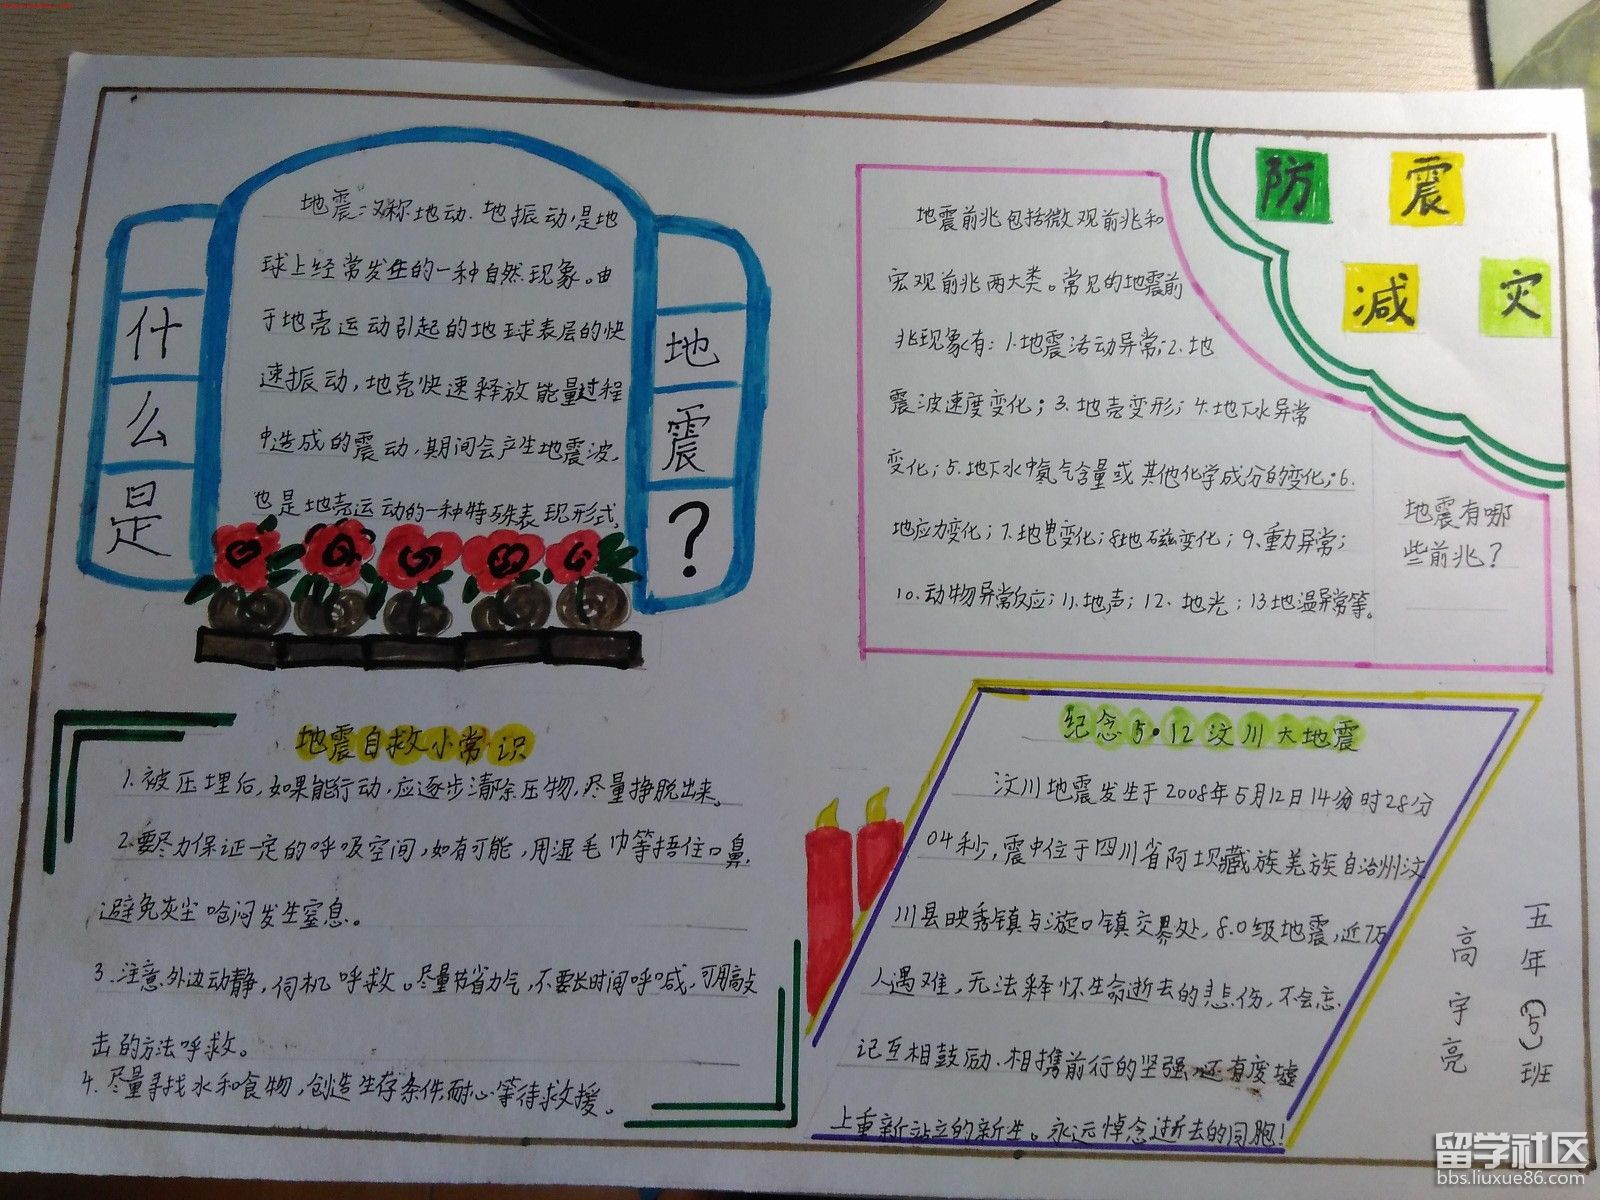 防震
减灾
什么是
地震?
地震又称地动、地振动,是地
球上经常发生的一种自然现象。由
于地壳运动引起的地球表层的快
速振动,地壳快速释放能量过程
中造成的震动,期间会产生地震波,
也是地壳运动的一种特殊表现形式,
地震前兆包括微观前兆和
宏观前兆两大类。常见的地震前
兆现象有:1.地震活动异常;2.地
震波速度变化;3.地壳变形;4.地下水异常
变化;5.地下水中氡气含量或其他化学成分的变化;6.
地应力变化;7.地电变化;8地磁变化;9.重力异常;
10.动物异常反应;11.地声;12.地光;13地温异常等。
地震有哪
些前兆?
地震自救小常识
1.被压埋后,如果能行动,应逐步清除压物,尽量挣脱出来。
2.要尽力保证一定的呼吸空间,如有可能,用湿毛巾等捂住口鼻,
避免灰尘呛闷发生窒息。
3.注意外边动静,伺机呼救。尽量节省力气,不要长时间呼喊,可用敲
击的方法呼救。
4.尽量寻找水和食物,创造生存条件,耐心等待救援。
纪念5·12汶川大地震
汶川地震发生于2008年5月12日14时28分
04秒,震中位于四川省阿坝藏族羌族自治州汶
川县映秀镇与漩口镇交界处,8.0级地震,近7万
人遇难,无法释怀生命逝去的悲伤,不会忘
记互相鼓励、相携前行的坚强 还有废墟
上重新站立的新生。永远悼念逝去的同胞!
五年(5)班
高宇亮
留学社区
bbs.liuxue86.com